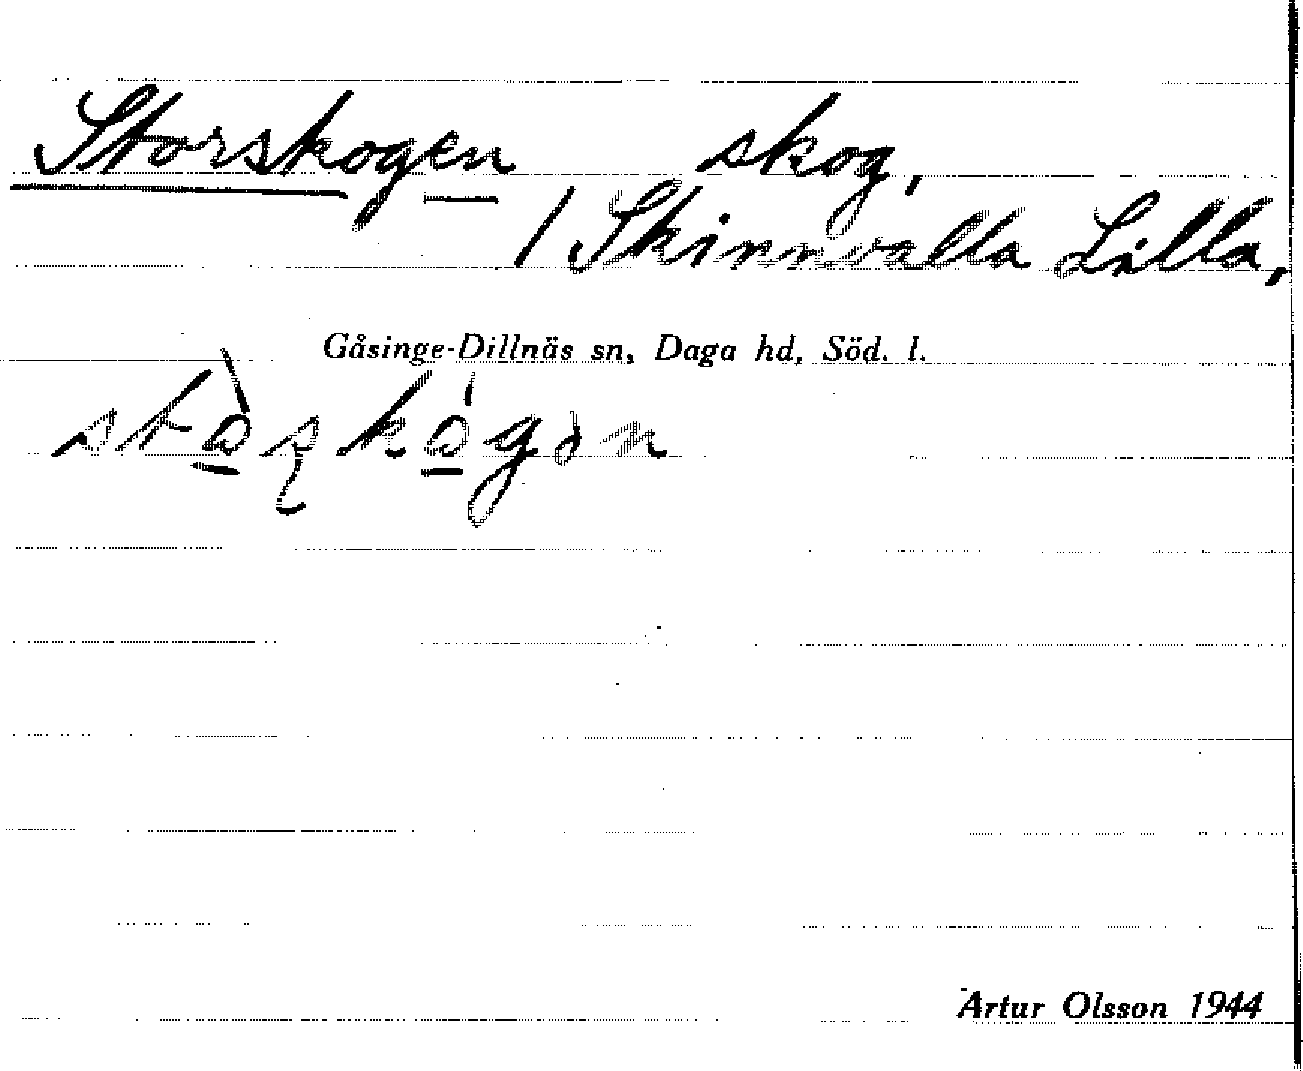 Storskogen skog,
/ Skinnvalla Lilla,
Gåsinge-Dillnäs sn, Daga hd, Söd. l.
Artur Olsson 1944